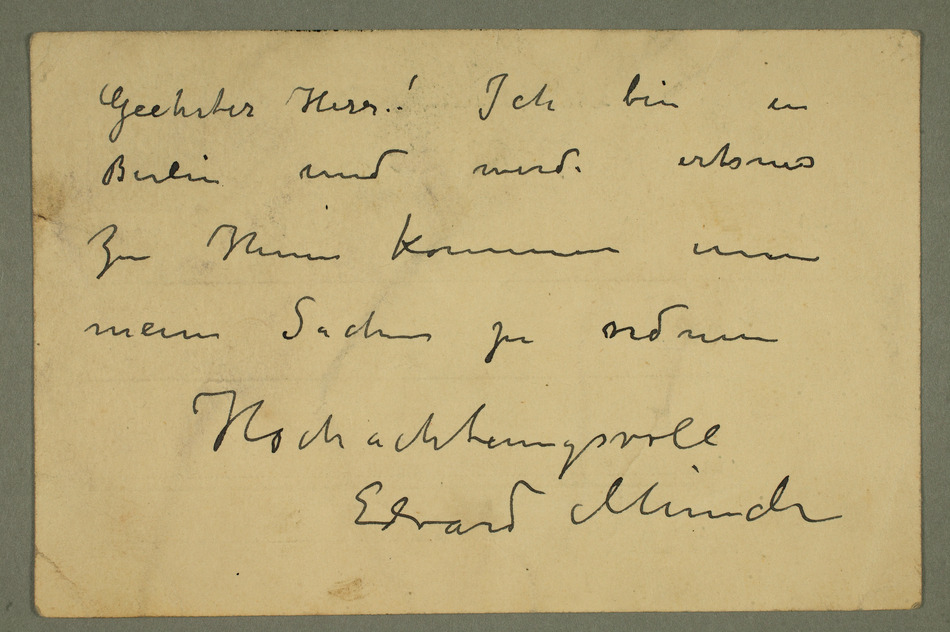 Geehrter Herr! Ich bin in
Berlin und werde
zu Ihnen kommen um
meine Sachen zu ordnen
Hochachtungsvoll
Edvard Munch